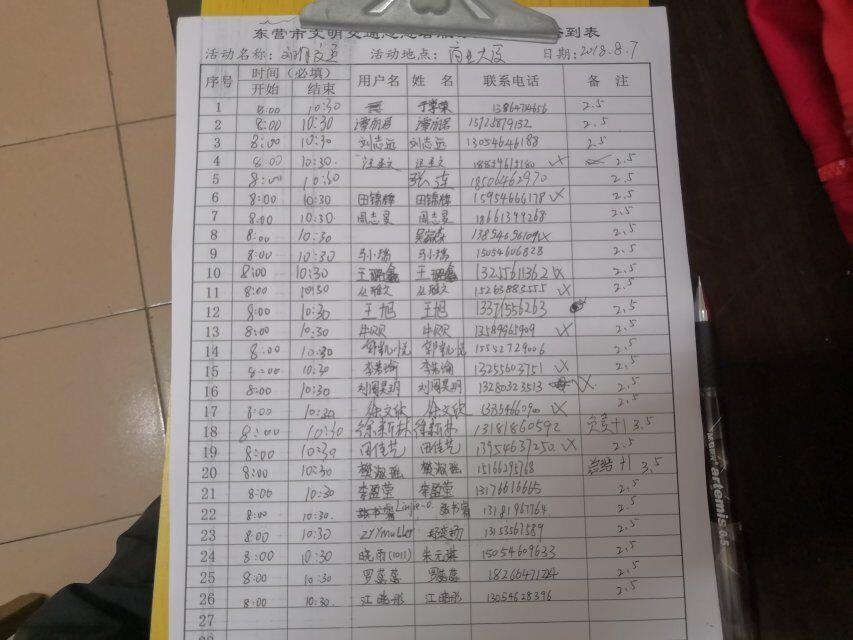 东营市文明交通志愿者 到表
活动名称: 文明交通 活动地点: 商业大厦 日期: 2018.8.7
序号 时间(必填) 用户名 姓 名 联系电话 备 注
开始 结束
1 8:00 10:30 2.5
2 8:00 10:30 15725879132 2.5
3 8:00 10:30 刘志远 刘志远 13054646188 2.5
4 8:00 10:30. 2.5
5 8:00 10:30 张连 18506462970 2.5
6 8:00 10:30 田锦樑 田锦樑 15954666178 2.5
7 8:00 10:30. 周志旻 周志旻 18661399268 2.5
8 8:00 10:30 2.5
9 8:00 10:30 马小瑞 马小瑞 15054606828 2.5
10 8:00 10:30 13255611362 2.5
11 8:00 10:30 丛雅文 丛雅文 15263883555 2.5
12 8:00 10:30 王旭 王旭 13371556263 2.5
13 8:00 10:30. 牛贝贝 牛贝贝 13589965909 2.5
14 8:00 10:30. 郭凯悦 郭凯悦 15552729006 2.5
15 8:00 10:30 13255603751 2.5
16 8:00 10:30 刘周昊玥 刘周昊玥 13280323513 2.5
17 8:00 10:30. 徐文欣 徐文欣 2.5
18 8:00 10:30 徐新林 徐新林 13181860592 负责+1 3.5
19 8:00 10:30. 田佳艺 田佳艺 13954637250 2.5
20 8:00 10:30. 樊淑瑶 樊淑瑶 15166295768 总结+1 3.5
21 8:00 10:30. 李盈莹 李盈莹 13176616665 2.5
22 8:00 10:30. 13181967764 2.5
23 8:00 10:30 zyymuller 13153567589 2.5
24 8:00 10:30 晓雨(1011) 朱元琪 15054609633 2.5
25 8:00 10:30 罗蕊蕊 罗蕊蕊 2.5
26 8:00 10:30. 江晓彤 江晓彤 13054628396 2.5
27
artemis 0.5